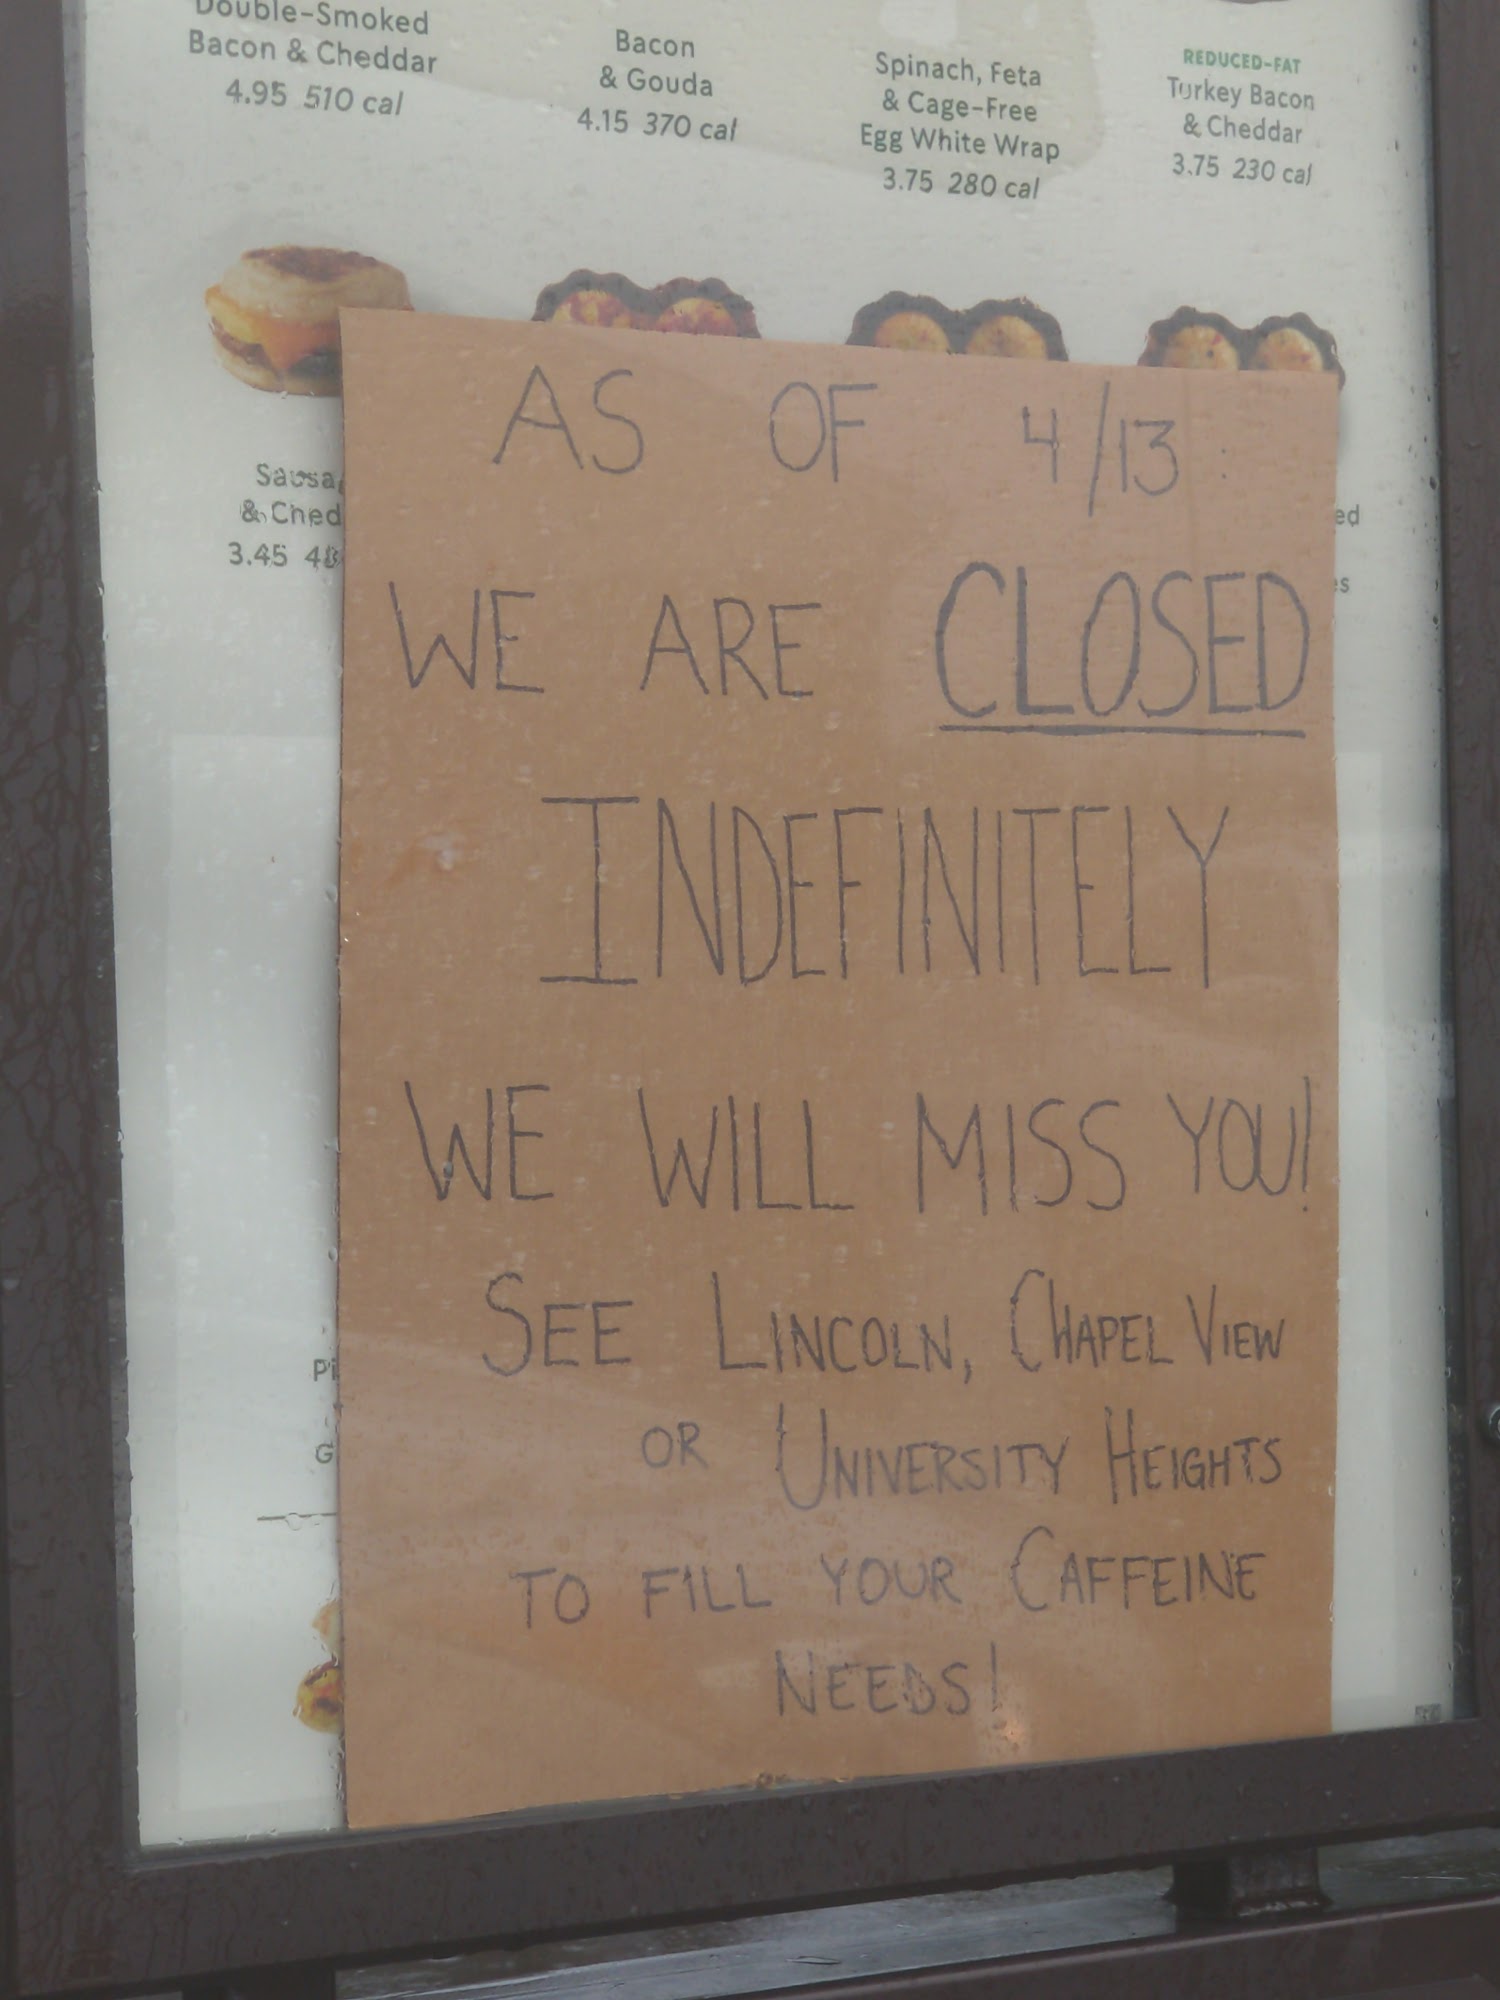 Double-Smoked
Bacon & Cheddar
4.95 510 cal
Bacon
& Gouda
4.15 370 cal
Spinach, Feta
& Cage-Free
Egg White Wrap
3.75 280 cal
REDUCED-FAT
Turkey Bacon
& Cheddar
3.75 230 cal
& Ched
3.45
AS OF 4/13:
WE ARE CLOSED
INDEFINITELY
WE WILL MISS YOU!
SEE LINCOLN, CHAPEL VIEW
OR UNIVERSITY HEIGHTS
TO FILL YOUR CAFFEINE
NEEDS!